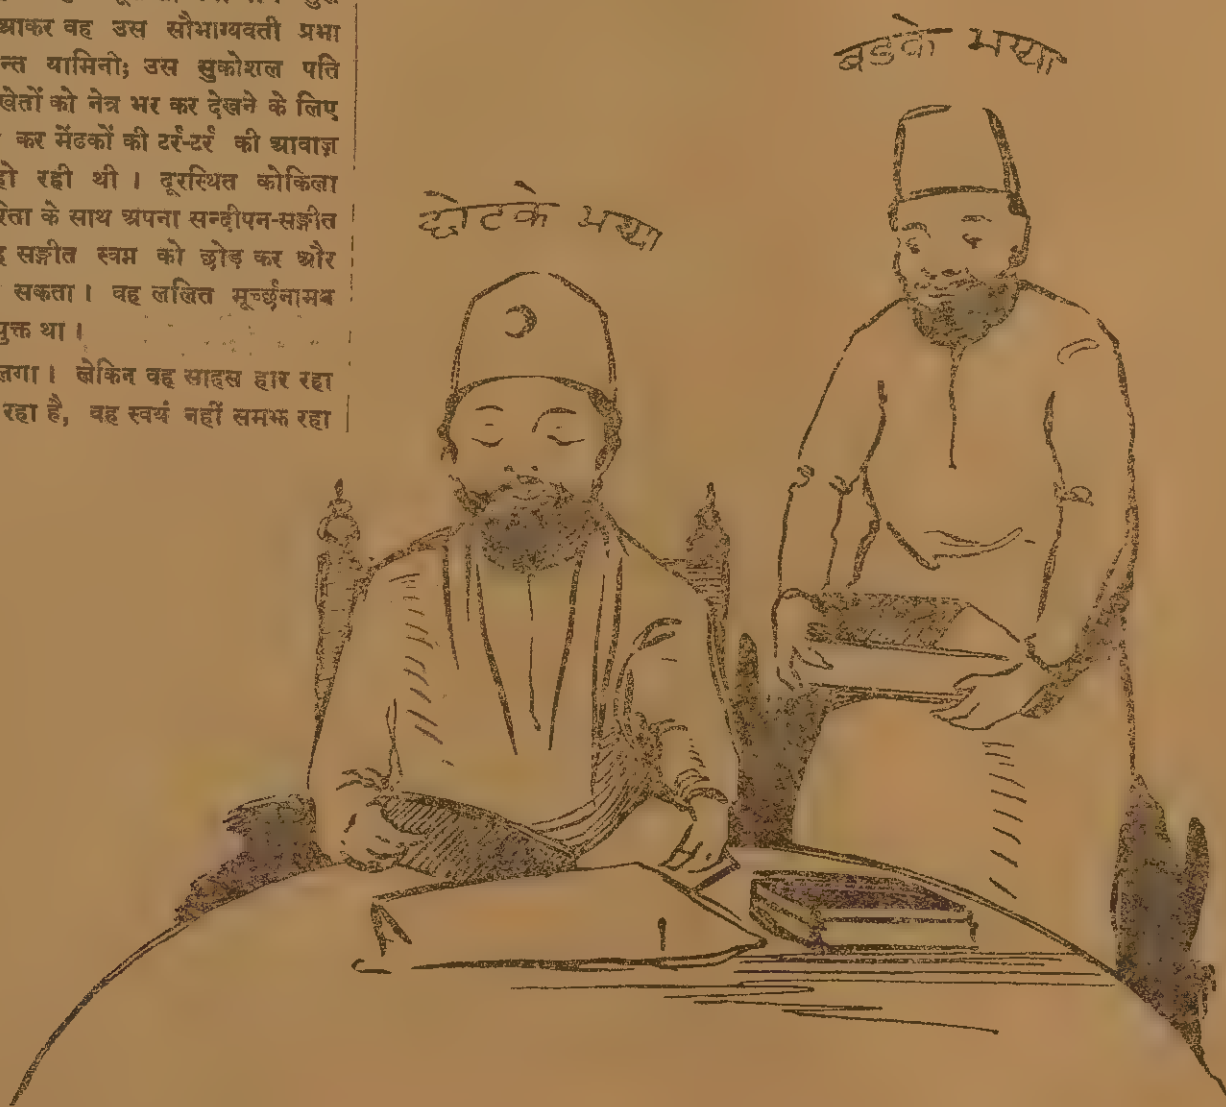 आकर वह उस सौभाग्यवती प्रभा
न्त यामिनी; उस सुकोशल पति
खेतों को नेत्र भर कर देखने के लिए
कर मेंढकों की टर्र-टर्र की आवाज़
हो रही थी । दूरस्थित कोकिला
रता के साथ अपना सन्दीपन-सङ्गीत
सङ्गीत स्वप्न को छोड़ कर और
सकता । वह ललित मूर्च्छनामय
युक्त था ।
लगा । लेकिन वह साहस हार रहा
रहा है, वह स्वयं नहीं समझ रहा
बड़के भय्या
छोटके भय्या